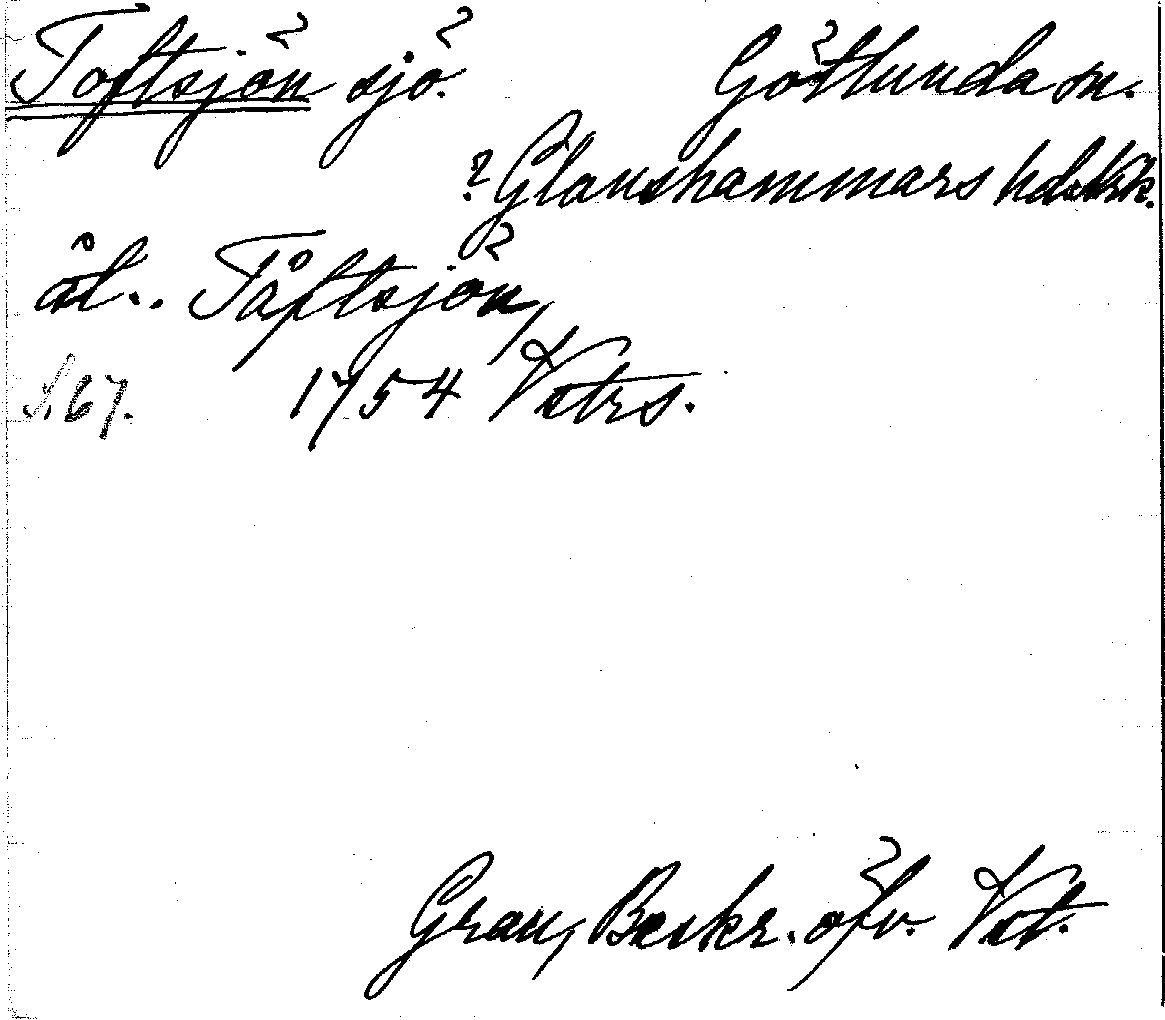 Toftsjön sjö. Götlunda sn.
? Glanshammars hd Örk.
äl.. Tåftsjön,
S. 67. 1754 Vstrs.
Grau, Beskr. öfv. Vst.